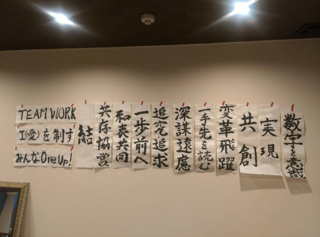 数字意識
実現
共創
変革飛躍
一手先を読む
深謀遠慮
追究追求
一歩前へ
和衷共同
共存協営
結
TEAM WORK
I(愛)を制す
みんなOne Up!